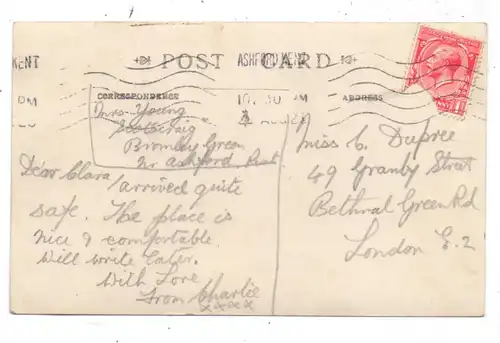 KENT
ASHFORD KENT
POST CARD
CORRESPONDENCE
10.30 AM
ADDRESS
PM
AUG 22
Mrs Young
Bromley Green
Nr Ashford Kent
Dear Clara
arrived quite
safe. The place is
nice & comfortable.
Will write later.
With Love
From Charlie
xxxx
Miss C. Dupree
49 Granby Street
Bethnal Green Rd
London E.2